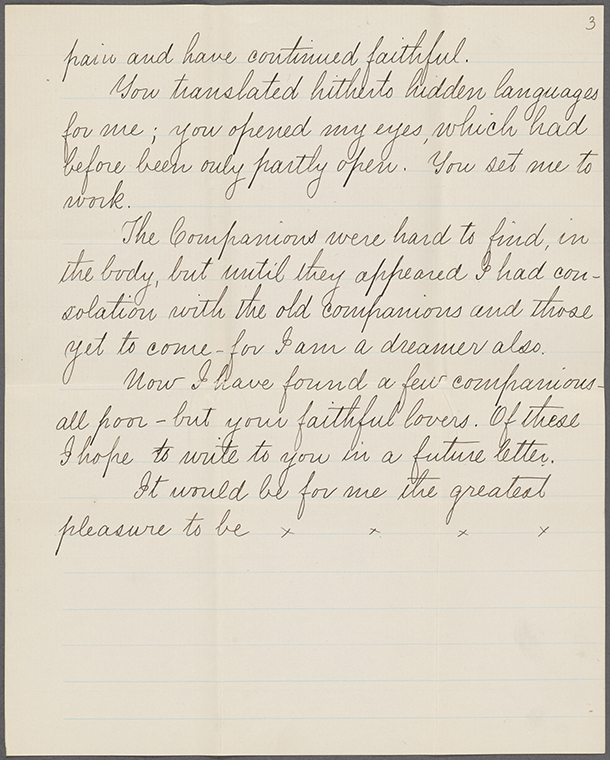 3
pain and have continued faithful.
You translated hitherto hidden languages
for me; you opened my eyes, which had
before been only partly open. You set me to
work.
The Companions were hard to find, in
the body, but until they appeared I had con-
solation with the old companions and those
yet to come - for I am a dreamer also.
Now I have found a few companions-
all poor - but your faithful lovers. Of these
I hope to write to you in a future letter.
It would be for me the greatest
pleasure to be x x x x